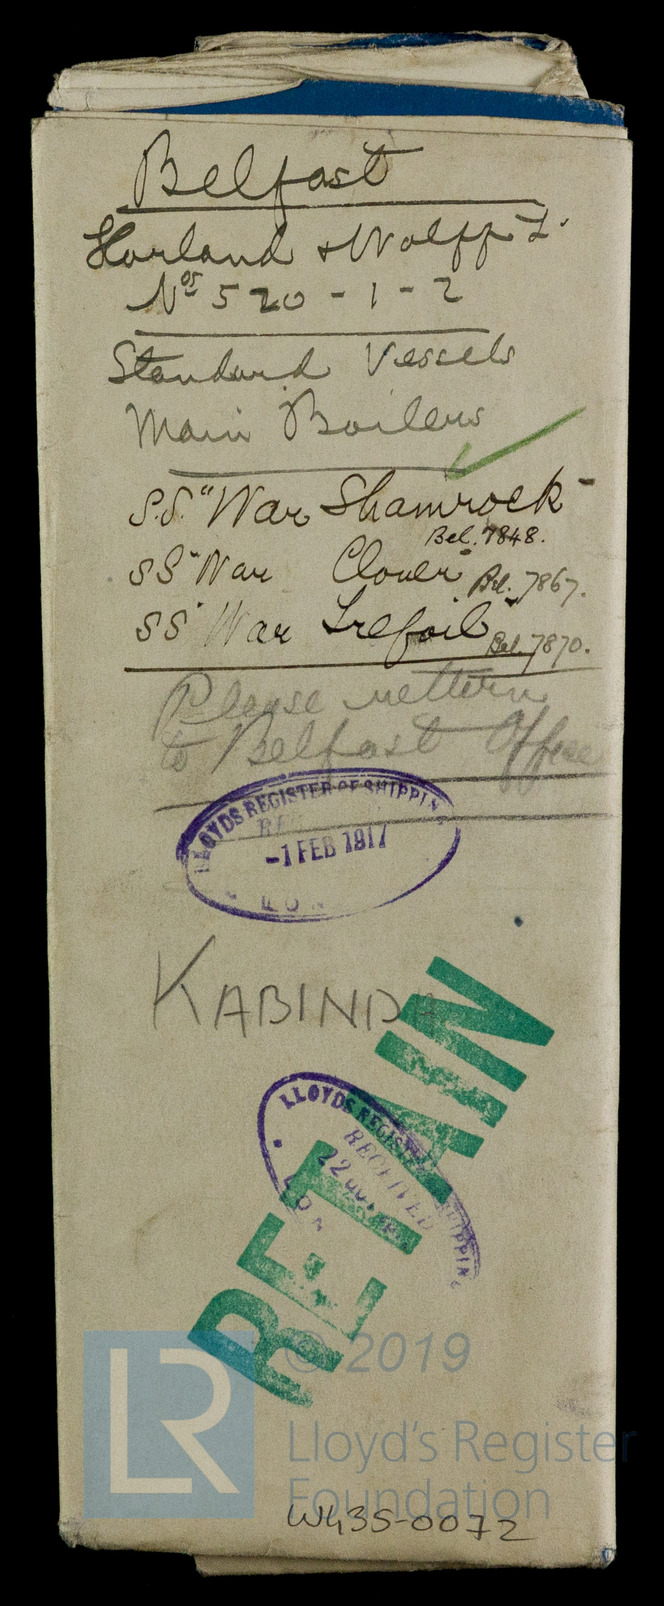 Belfast
Harland & Wolff L.
Nos 520-1-2
Standard Vessels
Main Boilers
S.S. "War Shamrock"
Bel. 7848.
SS "War Clover" Bel. 7867.
SS "War Trefoil" Bel. 7870.
Please return
to Belfast Office
LLOYDS REGISTER OF SHIPPING
-1 FEB 1917
LON
KABINDA
RETAIN
LLOYDS REGISTER SHIPPING
RECEIVED
22
LON
LR
© 2019
Lloyd's Register
Foundation
W435-0072